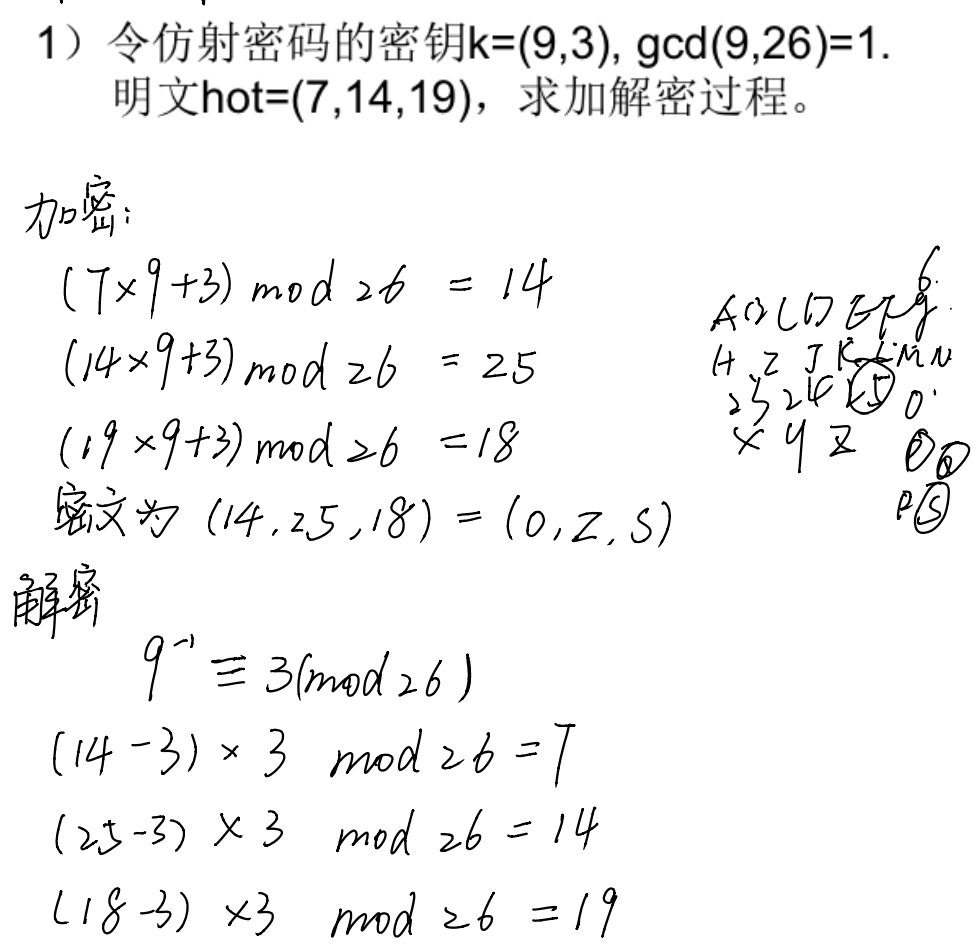 1）令仿射密码的密钥k=(9,3), gcd(9,26)=1.
明文hot=(7,14,19)，求加解密过程。
加密:
(7×9+3) mod 26 = 14
(14×9+3) mod 26 = 25
(19×9+3) mod 26 = 18
密文为 (14,25,18) = (O,Z,S)
6.
A B C D E F g
H I J K L M N
23 24 25 O
X Y Z P Q
R S
解密
9⁻¹ ≡ 3(mod 26)
(14-3) × 3 mod 26 = 7
(25-3) × 3 mod 26 = 14
(18-3) ×3 mod 26 = 19